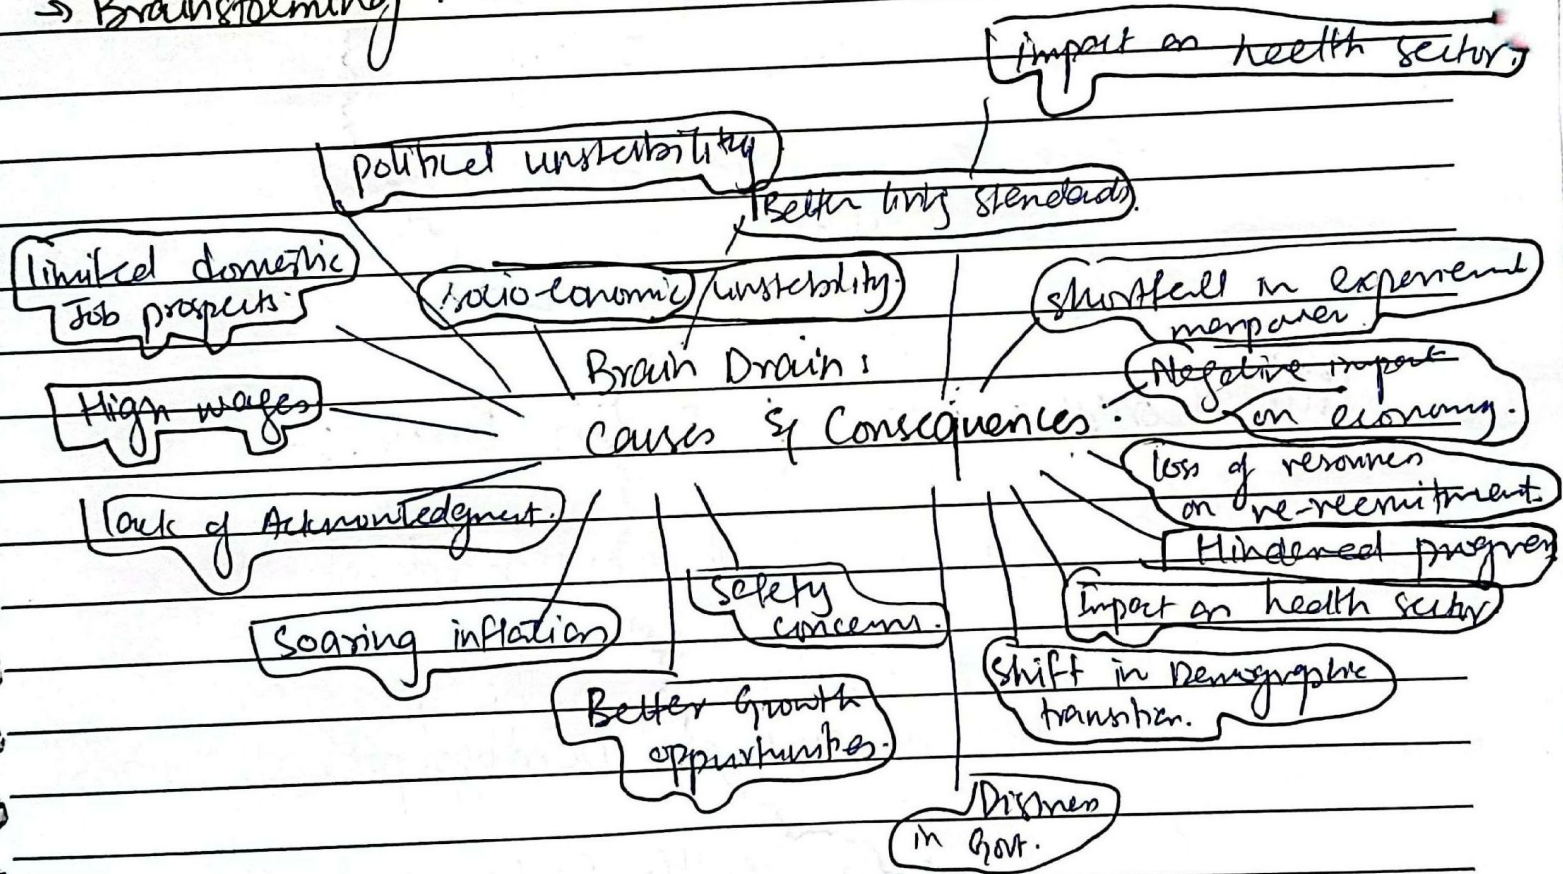 → Brainstorming
impact on health sector.
political unstability
Better living standards.
limited domestic
Job prospects.
socio-economic unstability.
shortfall in experienced
manpower.
Brain Drain:
Causes & Consequences.
Negative impact
on economy.
High wages
loss of resources
on re-recruitment.
lack of Acknowledgment.
Hindered progress
safety
concerns.
Impact on health sector
Soaring inflation
Shift in Demographic
transition.
Better Growth
opportunities.
in Govt.